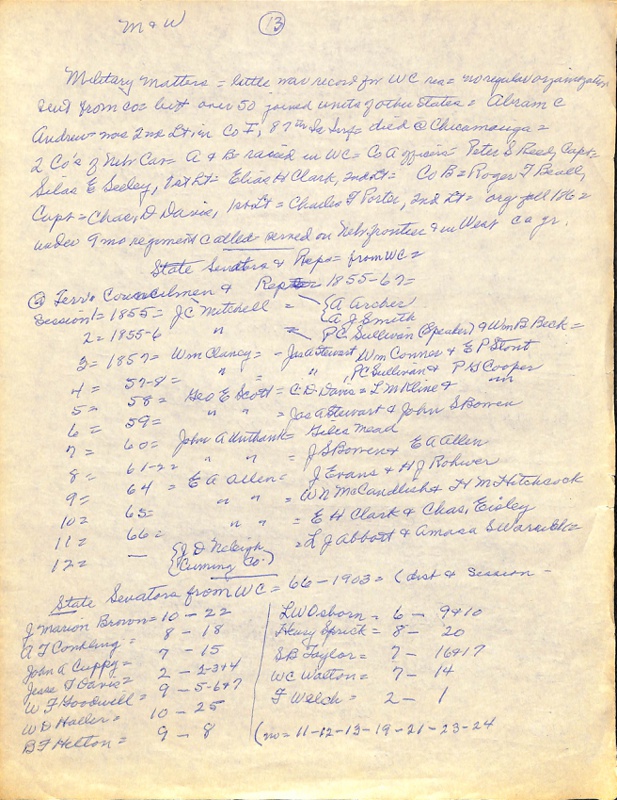 M & W (13)
Military matters = little war record for WC res = no regular organization
sent from co = but over 50 joined units of other states = Abram C
Andrew was 2nd Lt in Co F, 87th = died @ Chicamauga =
2 Co's of Neb Cav = A & B raised in WC = Co A officers = Peter S Reed, Capt =
Silas E Seeley, 1st Lt = Elias H Clark, 2nd Lt = Co B = Roger T Beall,
Capt = Chas. D Davis, 1st Lt = Charles F Porter, 2nd Lt = org fall 1862
under 9 mo regiment called = served on Neb. frontier & in West
State Senators & Reps = from WC =
@ Terr. Councilmen & Reps = 1855-67 =
Session 1 = 1855 = J C Mitchell = {A Archer
{A J Smith
2 = 1855-6 " = P.C. Sullivan (Speaker) & Wm B Beck =
3 = 1857 = Wm Clancy = - Jas A Stewart, Wm Connor & E P Stout
4 = 57-8 = " " = " , P C Sullivan & P G Cooper
5 = 58 = Geo E Scott = C D Davis = L M Kline &
6 = 59 = " " = Jas A Stewart & John S Bowen
7 = 60 = John A Unthank = Giles Mead
8 = 61-2 = " " = J S Bowen & E A Allen
9 = 64 = E A Allen = J Evans & H J Rohwer
10 = 65 = " " = W N McCandlish & H M Hitchcock
11 = 66 = " " = E H Clark & Chas. Eisley
12 = — {J D Neligh = L J Abbott & Amasa S Warrick =
{(Cuming Co.)
State Senators from WC = 66 - 1903 = (dist & session -
J Marion Brown = 10 - 22
A T Conkling = 8 - 18
John A Cuppy = 7 - 15
Jesse T Davis = 2 - 2-3+4
W F Goodwill = 9 - 5-6+7
W D Haller = 10 - 25
B F Hilton = 9 - 8
L W Osborn = 6 - 9+10
Henry Sprick = 8 - 20
S B Taylor = 7 - 16+17
W C Walton = 7 - 14
F Welch = 2 - 1
(no = 11-12-13-19-21-23-24